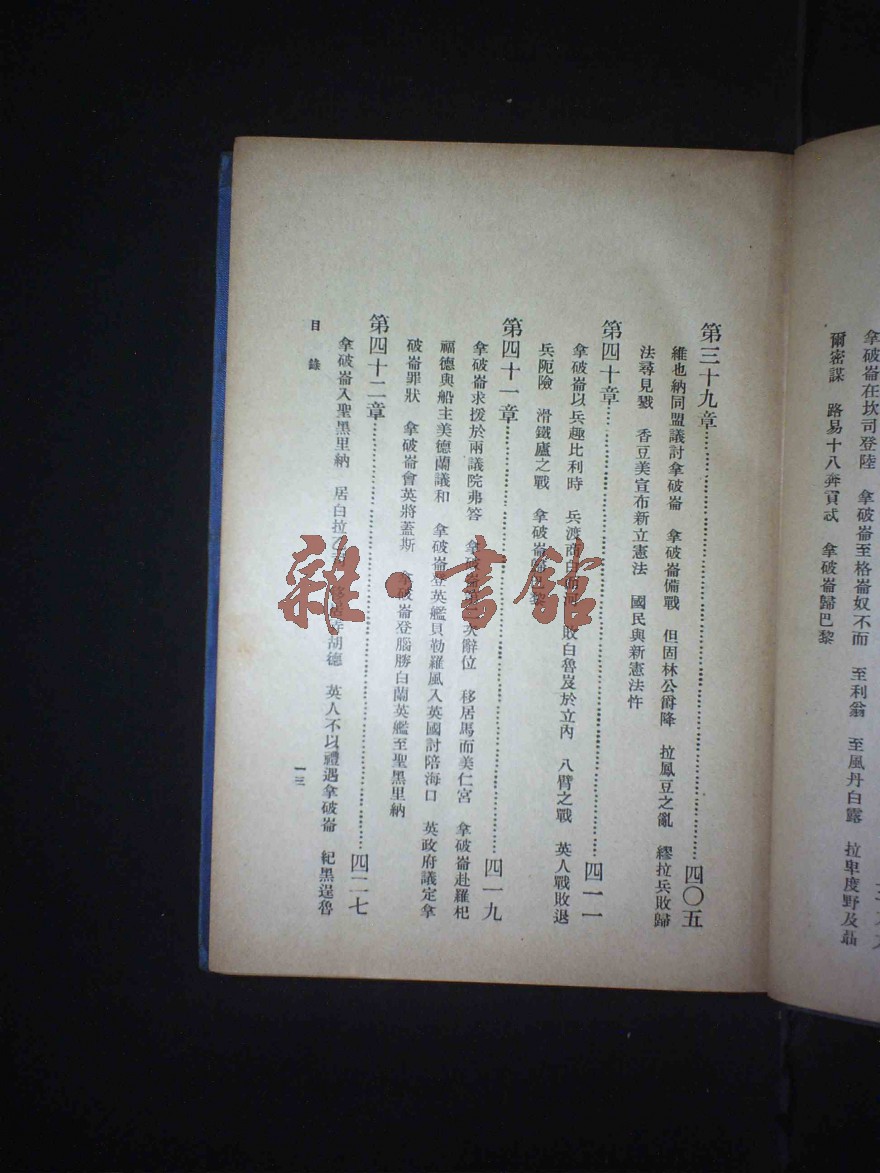 拿破崙在坎司登陸　拿破崙至格崙奴不而　至利翁　至風丹白露　拉卑度野及
爾密謀　路易十八奔貢忒　拿破崙歸巴黎
第三十九章……四〇五
維也納同盟議討拿破崙　拿破崙備戰　但固林公爵降　拉鳳豆之亂　繆拉兵敗歸
法尋見戮　香豆美宣布新立憲法　國民與新憲法忤
第四十章……四一一
拿破崙以兵趣比利時　兵渡商白而河　敗白魯岌於立內　八臂之戰　英人戰敗退
兵阨險　滑鐵廬之戰　拿破崙歸巴黎
第四十一章……四一九
拿破崙求援於兩議院弗答　拿破崙第二次辭位　移居馬而美仁宮　拿破崙赴羅杷
福德與船主美德蘭議和　拿破崙登英艦貝勒羅風入英國討陪海口　英政府議定拿
破崙罪狀　拿破崙會英將蓋斯　拿破崙登腦勝白蘭英艦至聖黑里納
第四十二章……四二七
拿破崙入聖黑里納　居白拉乙　寺胡德　英人不以禮遇拿破崙　紀黑逞魯
目錄
一三
雜·書館